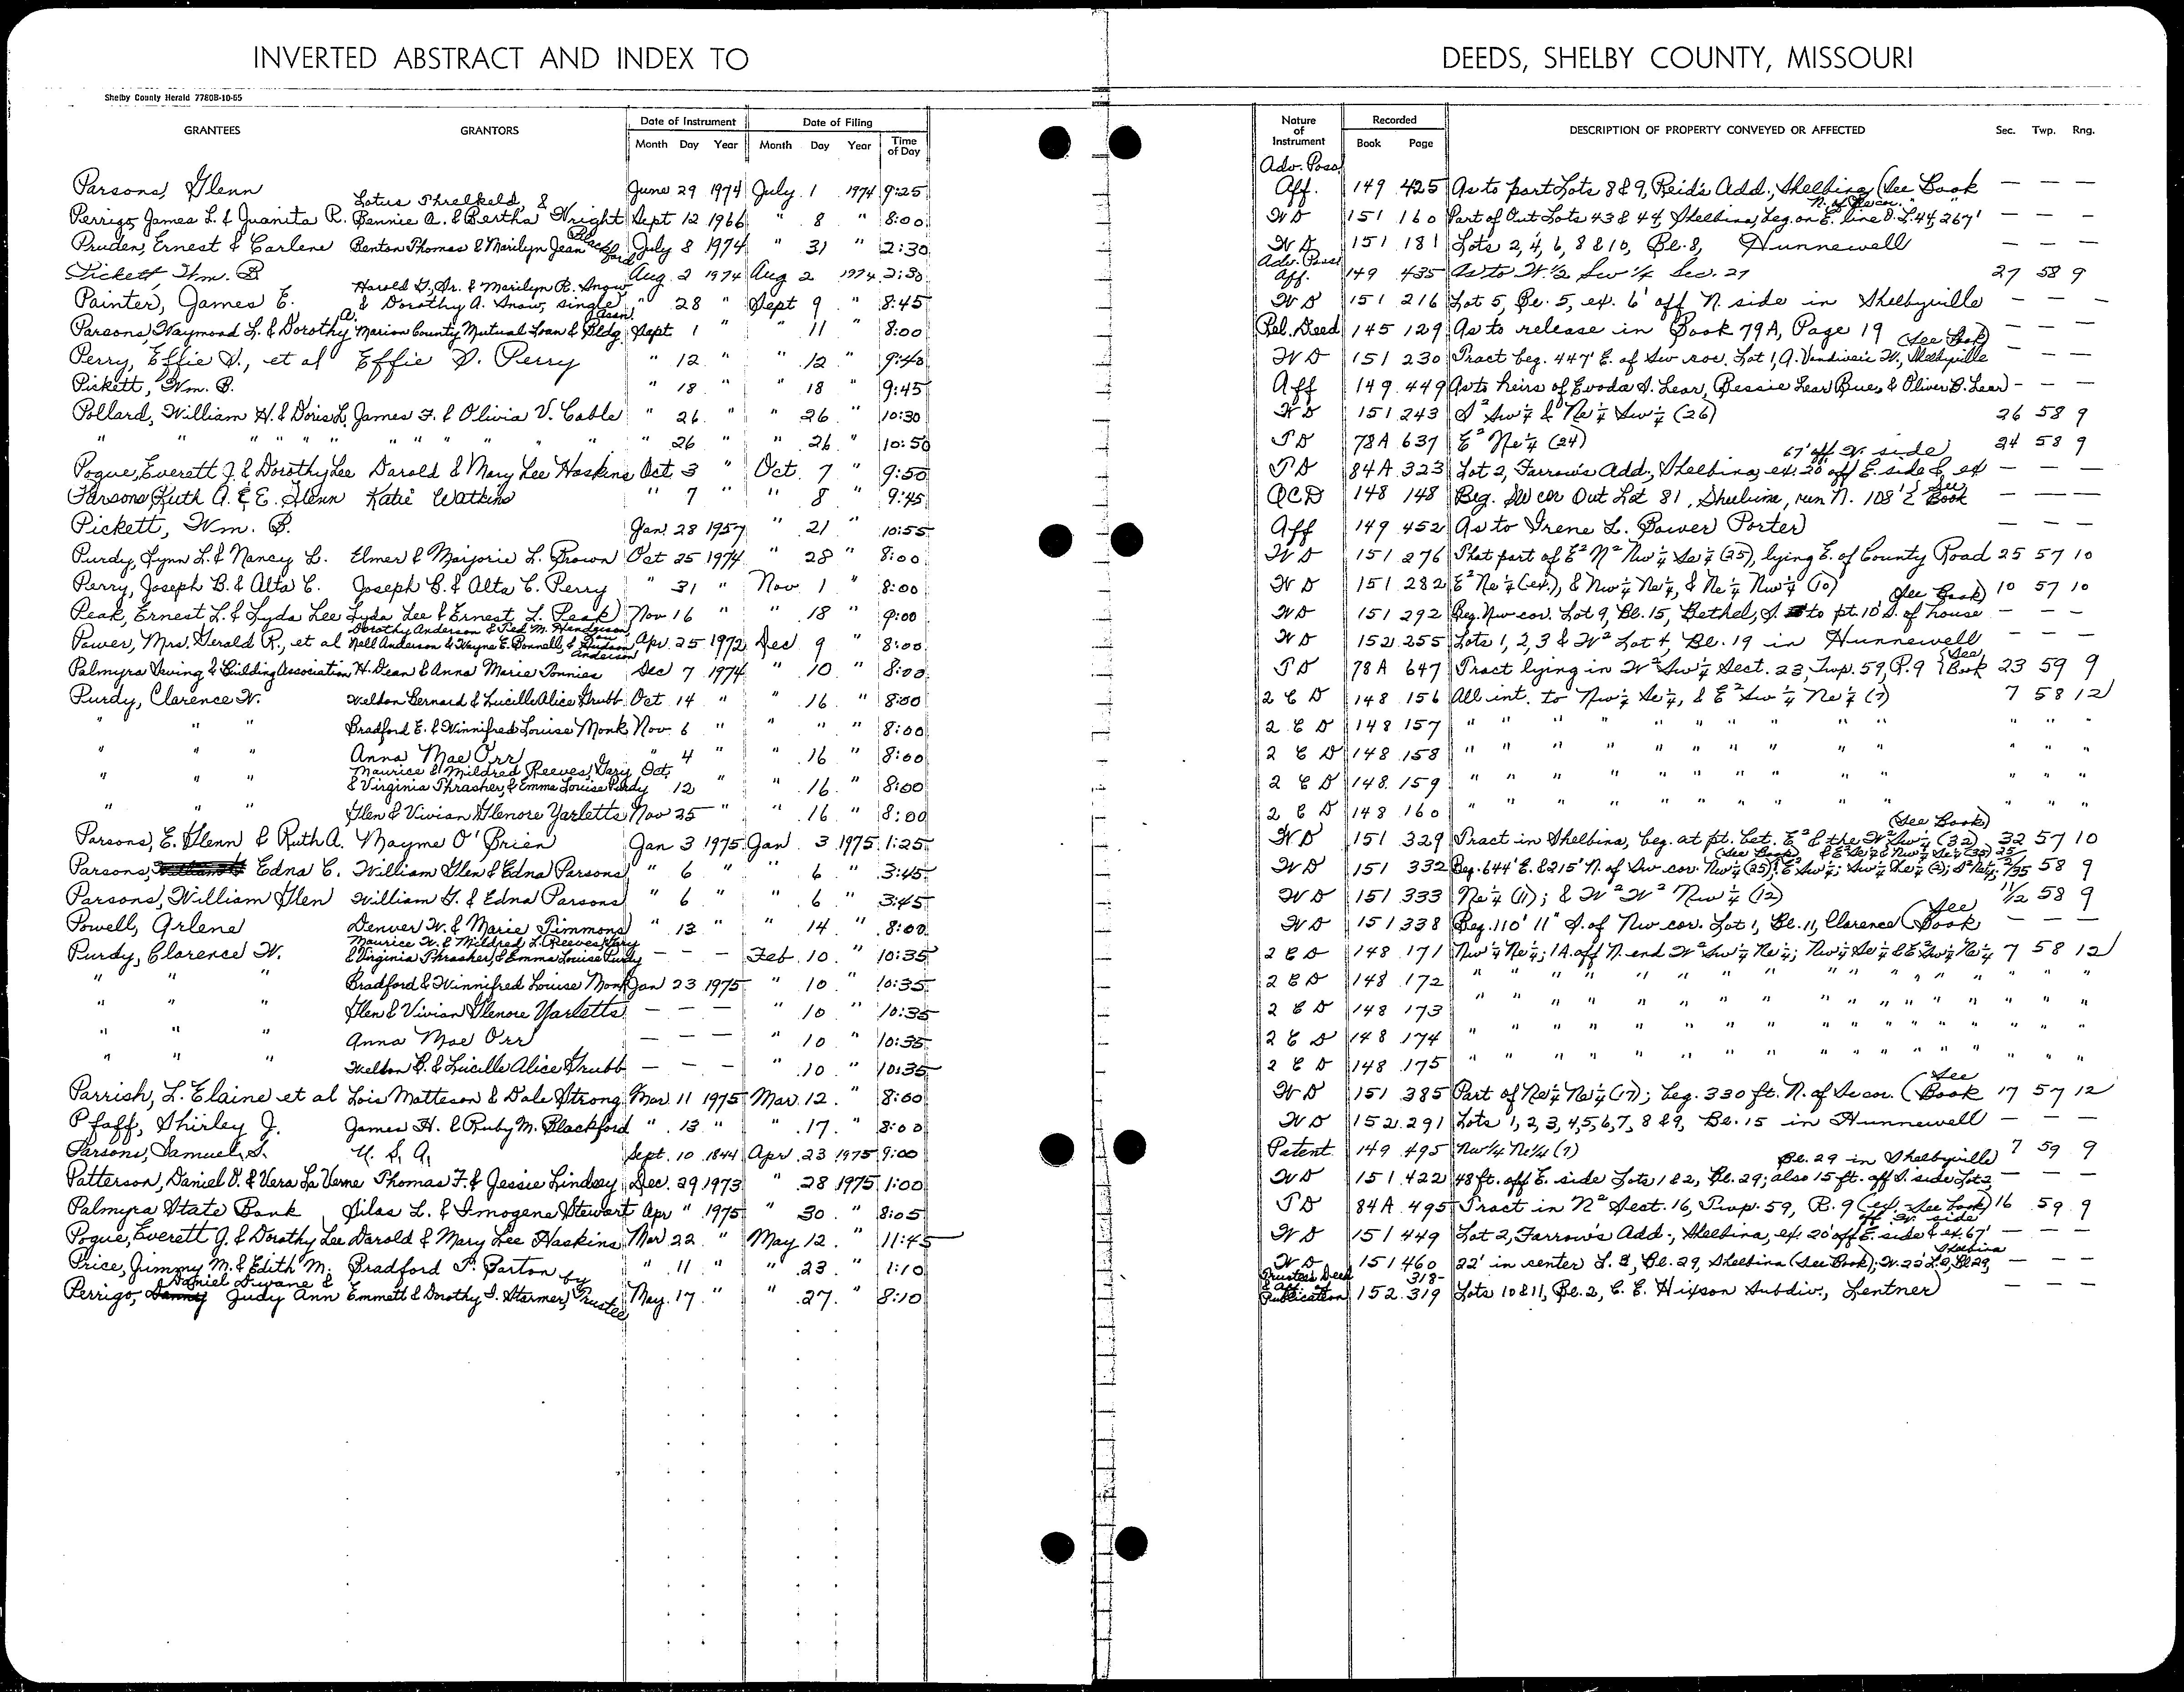 INVERTED ABSTRACT AND INDEX TO DEEDS, SHELBY COUNTY, MISSOURI
Shelby County Herald 7780B-10-65
GRANTEES GRANTORS Date of Instrument Month Day Year Date of Filing Month Day Year Time of Day Nature of Instrument Recorded Book Page DESCRIPTION OF PROPERTY CONVEYED OR AFFECTED Sec. Twp. Rng.
Parsons, Glenn June 29 1974 July 1 1974 9:25 Adv. Poss. Aff. 149 425 As to part Lots 8 & 9, Reid's Add., Shelbina (See Book — — —
Perrigo, James L. & Juanita R. Lotus Threlkeld, & Bennie A. & Bertha Wright Sept 12 1966 " 8 " 8:00 WD 151 160 Part of Out Lots 43 & 44, Shelbina, beg. on E. line O.L. 44, 267' — — —
Pruden, Ernest & Carlene Benton Thomas & Marilyn Jean Blackford July 8 1974 " 31 " 2:30 WD 151 181 Lots 2, 4, 6, 8 & 10, Bl. 8, Hunnewell — — —
Pickett, Wm. B. Aug. 2 1974 Aug 2 1974 2:30 Adv. Poss. Aff. 149 435 As to W. 1/2 Sw 1/4 Sec. 27 27 58 9
Painter, James E. Harold G., Sr. & Marilyn R. Snow & Dorothy A. Snow, single " 28 " Sept 9 " 8:45 WD 151 216 Lot 5, Bl. 5, ex. 6' off N. side in Shelbyville — — —
Parsons, Waymond L. & Dorothy A. Marion County Mutual Loan & Bldg. Assn. Sept 1 " " 11 " 8:00 Rel. Deed 145 129 As to release in Book 79A, Page 19 — — —
Perry, Effie D., et al Effie D. Perry " 12 " " 12 " 9:40 WD 151 230 Tract beg. 447' E. of Sw cor. Lot 1, A. Vandiver's W., Shelbyville (See Book) — — —
Pickett, Wm. B. " 18 " " 18 " 9:45 Aff 149 449 As to heirs of Evoda S. Lear, Bessie Lear Bue, & Oliver B. Lear — — —
Pollard, William H. & Doris L. James F. & Olivia V. Cable " 26 " " 26 " 10:30 WD 151 243 S² Sw 1/4 & Ne 1/4 Sw 1/4 (26) 26 58 9
" " " " " " " " " " " " " 26 " " 26 " 10:50 TD 78A 637 E² Ne 1/4 (24) 24 58 9
Pogue, Everett J. & Dorothy Lee Darold & Mary Lee Haskins Oct 3 " Oct. 7 " 9:50 TD 84A 323 Lot 2, Farrow's Add., Shelbina, ex. 20' off E. side & ex 67' off W. side — — —
Parsons, Ruth A. & E. Glenn Katie Watkins " 7 " " 8 " 9:45 QCD 148 148 Beg. SW cor Out Lot 81, Shelbina, run N. 108' (See Book — — —
Pickett, Wm. B. Jan. 28 1957 " 21 " 10:55 Aff 149 452 As to Irene L. Bower Porter — — —
Purdy, Lynn L. & Nancy L. Elmer & Marjorie L. Brown Oct 25 1974 " 28 " 8:00 WD 151 276 That part of E² N² Nw 1/4 Se 1/4 (25), lying E. of County Road 25 57 10
Perry, Joseph B. & Alta C. Joseph B. & Alta C. Perry " 31 " Nov. 1 " 8:00 WD 151 282 E² Ne 1/4 (ex.), & Nw 1/4 Ne 1/4, & Ne 1/4 Nw 1/4 (10) 10 57 10
Peak, Ernest L. & Lyda Lee Lyda Lee & Ernest L. Peak Nov 16 " " 18 " 9:00 WD 151 292 Beg. Nw cor. Lot 9, Bl. 15, Bethel, S. to pt. 10' S. of house (See Book) — — —
Power, Mrs. Gerald R., et al Dorothy Anderson & Ted M. Henderson, Nell Anderson & Wayne E. Bonnell, & Anderson Apr 25 1972 Dec 9 " 8:00 WD 152 255 Lots 1, 2, 3 & W² Lot 4, Bl. 19 in Hunnewell — — —
Palmyra Saving & Building Association H. Dean & Anna Marie Tonnies Dec 7 1974 " 10 " 8:00 TD 78A 647 Tract lying in W² Sw 1/4 Sect. 23, Twp. 59, R. 9 (See Book 23 59 9
Purdy, Clarence W. Weldon Bernard & Lucille Alice Grubb Oct 14 " " 16 " 8:00 2 C D 148 156 All int. to Nw 1/4 Se 1/4, & E² Sw 1/4 Ne 1/4 (7) 7 58 12
" " " Bradford E. & Winnifred Louise Monk Nov. 6 " " " " 8:00 2 C D 148 157 " " " " " " " " " " " " "
" " " Anna Mae Orr " 4 " 16 " 8:00 2 C D 148 158 " " " " " " " " " " " " "
" " " Maurice & Mildred Reeves, Gary & Virginia Thrasher, & Emma Louise Purdy Oct. 12 " " 16 " 8:00 2 C D 148 159 " " " " " " " " " " " " "
" " " Glen & Vivian Glenore Yarletts Nov 25 " " 16 " 8:00 2 C D 148 160 " " " " " " " " " " " " "
Parsons, E. Glenn & Ruth A. Mayme O'Brien Jan 3 1975 Jan. 3 1975 1:25 WD 151 329 Tract in Shelbina, beg. at pt. bet. E² & the W² Sw 1/4 (32) (See Book) 32 57 10
Parsons, Edna C. William Glen & Edna Parsons " 6 " " 6 " 3:45 WD 151 332 Beg. 644' E. & 215' N. of Sw cor. Nw 1/4 (25); (See Book) 58 9
Parsons, William Glen William G. & Edna Parsons " 6 " " 6 " 3:45 WD 151 333 Ne 1/4 (11); & W² W² Nw 1/4 (12) 11/12 58 9
Powell, Arlene Denver W. & Marie Timmons " 13 " " 14 " 8:00 WD 151 338 Beg. 110' 11" S. of Nw cor. Lot 1, Bl. 11, Clarence (See Book — — —
Purdy, Clarence W. Maurice W. & Mildred L. Reeves, Gary & Virginia Thrasher, & Emma Louise Purdy — — — Feb. 10 " 10:35 2 C D 148 171 Nw 1/4 Ne 1/4; 1A. off N. end W² Sw 1/4 Ne 1/4; Nw 1/4 Se 1/4 & E² Sw 1/4 Ne 1/4 7 58 12
" " " Bradford & Winnifred Louise Monk Jan 23 1975 " 10 " 10:35 2 C D 148 172 " " " " " " " " " " " " "
" " " Glen & Vivian Glenore Yarletts — — — " 10 " 10:35 2 C D 148 173 " " " " " " " " " " " " "
" " " Anna Mae Orr — — — " 10 " 10:35 2 C D 148 174 " " " " " " " " " " " " "
" " " Weldon B. & Lucille Alice Grubb — — — " 10 " 10:35 2 C D 148 175 " " " " " " " " " " " " "
Parrish, L. Elaine et al Lois Matteson & Dale Strong Mar 11 1975 Mar. 12 " 8:00 WD 151 385 Part of Ne 1/4 Ne 1/4 (17); beg. 330 ft. N. of Se cor. (See Book 17 57 12
Pfaff, Shirley J. James H. & Ruby M. Blackford " 13 " " 17 " 8:00 WD 152 291 Lots 1, 2, 3, 4, 5, 6, 7, 8 & 9, Bl. 15 in Hunnewell — — —
Parsons, Samuel S. U. S. A. Sept. 10 1844 Apr. 23 1975 9:00 Patent 149 495 Nw 1/4 Ne 1/4 (7) 7 59 9
Patterson, Daniel O. & Vera La Verne Thomas F. & Jessie Lindsey Dec. 29 1973 " 28 1975 1:00 WD 151 422 48 ft. off E. side Lots 1 & 2, Bl. 29; also 15 ft. off S. side Lot 2, Bl. 29 in Shelbyville — — —
Palmyra State Bank Silas L. & Imogene Stewart Apr " 1975 " 30 " 8:05 TD 84A 495 Tract in N² Sect. 16, Twp. 59, R. 9 (ex. See Book) 16 59 9
Pogue, Everett J. & Dorothy Lee Darold & Mary Lee Haskins Mar 22 " May 12 " 11:45 WD 151 449 Lot 2, Farrow's Add., Shelbina, ex. 20' off E. side & ex. 67' off W. side — — —
Price, Jimmy M. & Edith M. Bradford P. Barton " 11 " " 23 " 1:10 WD 151 460 22' in center L. 2, Bl. 29, Shelbina (See Book); W. 22' L. 2, Bl. 29, Shelbina — — —
Perrigo, Daniel Dwane & Judy Ann Emmett & Dorothy I. Starmer, by Trustee May 17 " " 27 " 8:10 Trustee's Deed & Aff. Publication 152 318-319 Lots 10 & 11, Bl. 2, C. E. Hixson Subdiv., Lentner — — —